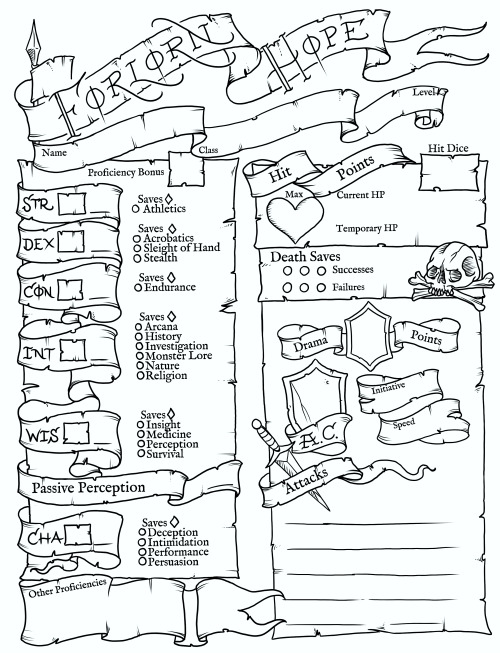 FORLORN HOPE
Level
Name
Class
Proficiency Bonus
STR
Saves
Athletics
DEX
Saves
Acrobatics
Sleight of Hand
Stealth
CON
Saves
Endurance
INT
Saves
Arcana
History
Investigation
Monster Lore
Nature
Religion
WIS
Saves
Insight
Medicine
Perception
Survival
Passive Perception
CHA
Saves
Deception
Intimidation
Performance
Persuasion
Other Proficiencies
Hit Points
Hit Dice
Max
Current HP
Temporary HP
Death Saves
Successes
Failures
Drama Points
Initiative
Speed
A.C.
Attacks